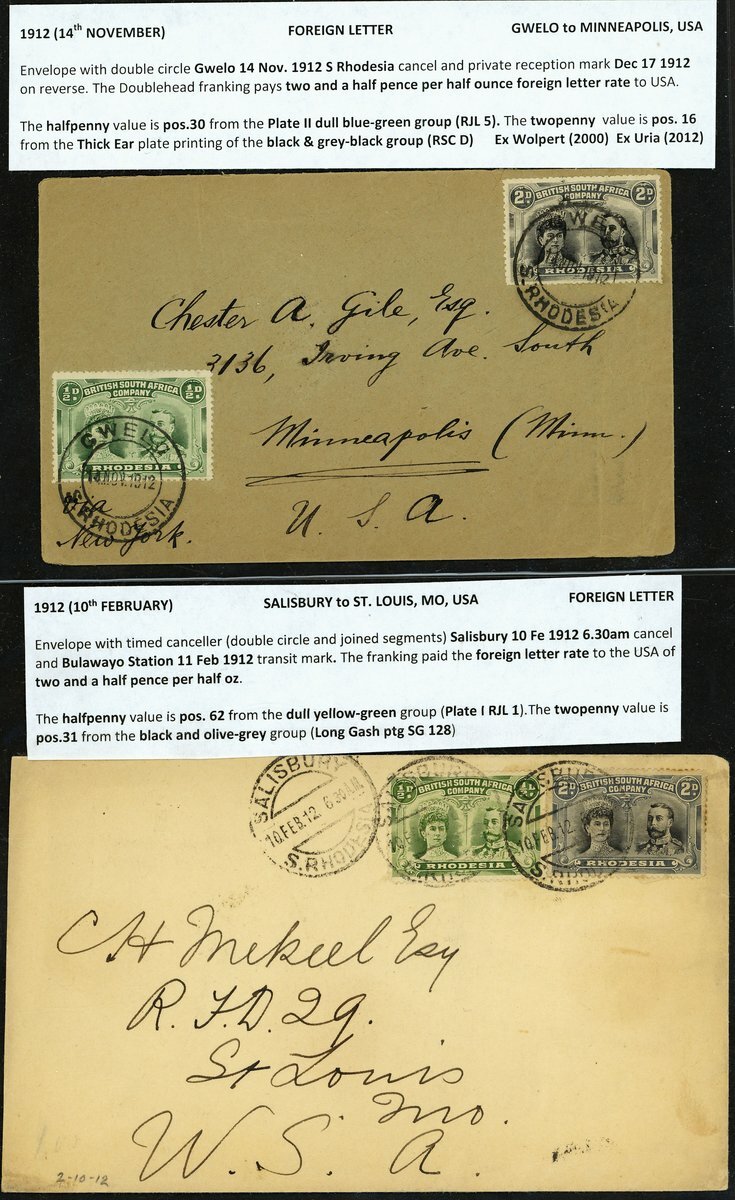 1912 (14th NOVEMBER) FOREIGN LETTER GWELO to MINNEAPOLIS, USA
Envelope with double circle Gwelo 14 Nov. 1912 S Rhodesia cancel and private reception mark Dec 17 1912
on reverse. The Doublehead franking pays two and a half pence per half ounce foreign letter rate to USA.
The halfpenny value is pos.30 from the Plate II dull blue-green group (RJL 5). The twopenny value is pos. 16
from the Thick Ear plate printing of the black & grey-black group (RSC D) Ex Wolpert (2000) Ex Uria (2012)
2D BRITISH SOUTH AFRICA 2D
COMPANY
RHODESIA
GWELO
1912
S. RHODESIA
Chester A. Gile, Esq.
3136, Irving Ave. South
Minneapolis (Minn.)
U. S. A.
½D BRITISH SOUTH AFRICA ½D
COMPANY
RHODESIA
GWELO
14 NOV. 1912
S. RHODESIA
Via
New York.
1912 (10th FEBRUARY) SALISBURY to ST. LOUIS, MO, USA FOREIGN LETTER
Envelope with timed canceller (double circle and joined segments) Salisbury 10 Fe 1912 6.30am cancel
and Bulawayo Station 11 Feb 1912 transit mark. The franking paid the foreign letter rate to the USA of
two and a half pence per half oz.
The halfpenny value is pos. 62 from the dull yellow-green group (Plate I RJL 1).The twopenny value is
pos.31 from the black and olive-grey group (Long Gash ptg SG 128)
SALISBURY
10.FEB.12 6.30AM
S.RHODESIA
½D BRITISH SOUTH AFRICA ½D
COMPANY
RHODESIA
SALISBURY
2D BRITISH SOUTH AFRICA 2D
COMPANY
RHODESIA
SALISBURY
10.FEB.12
S.RHO
CH Mekeel Esy
R.F.D. 29.
St Louis
Mo.
U. S. A.
2-10-12